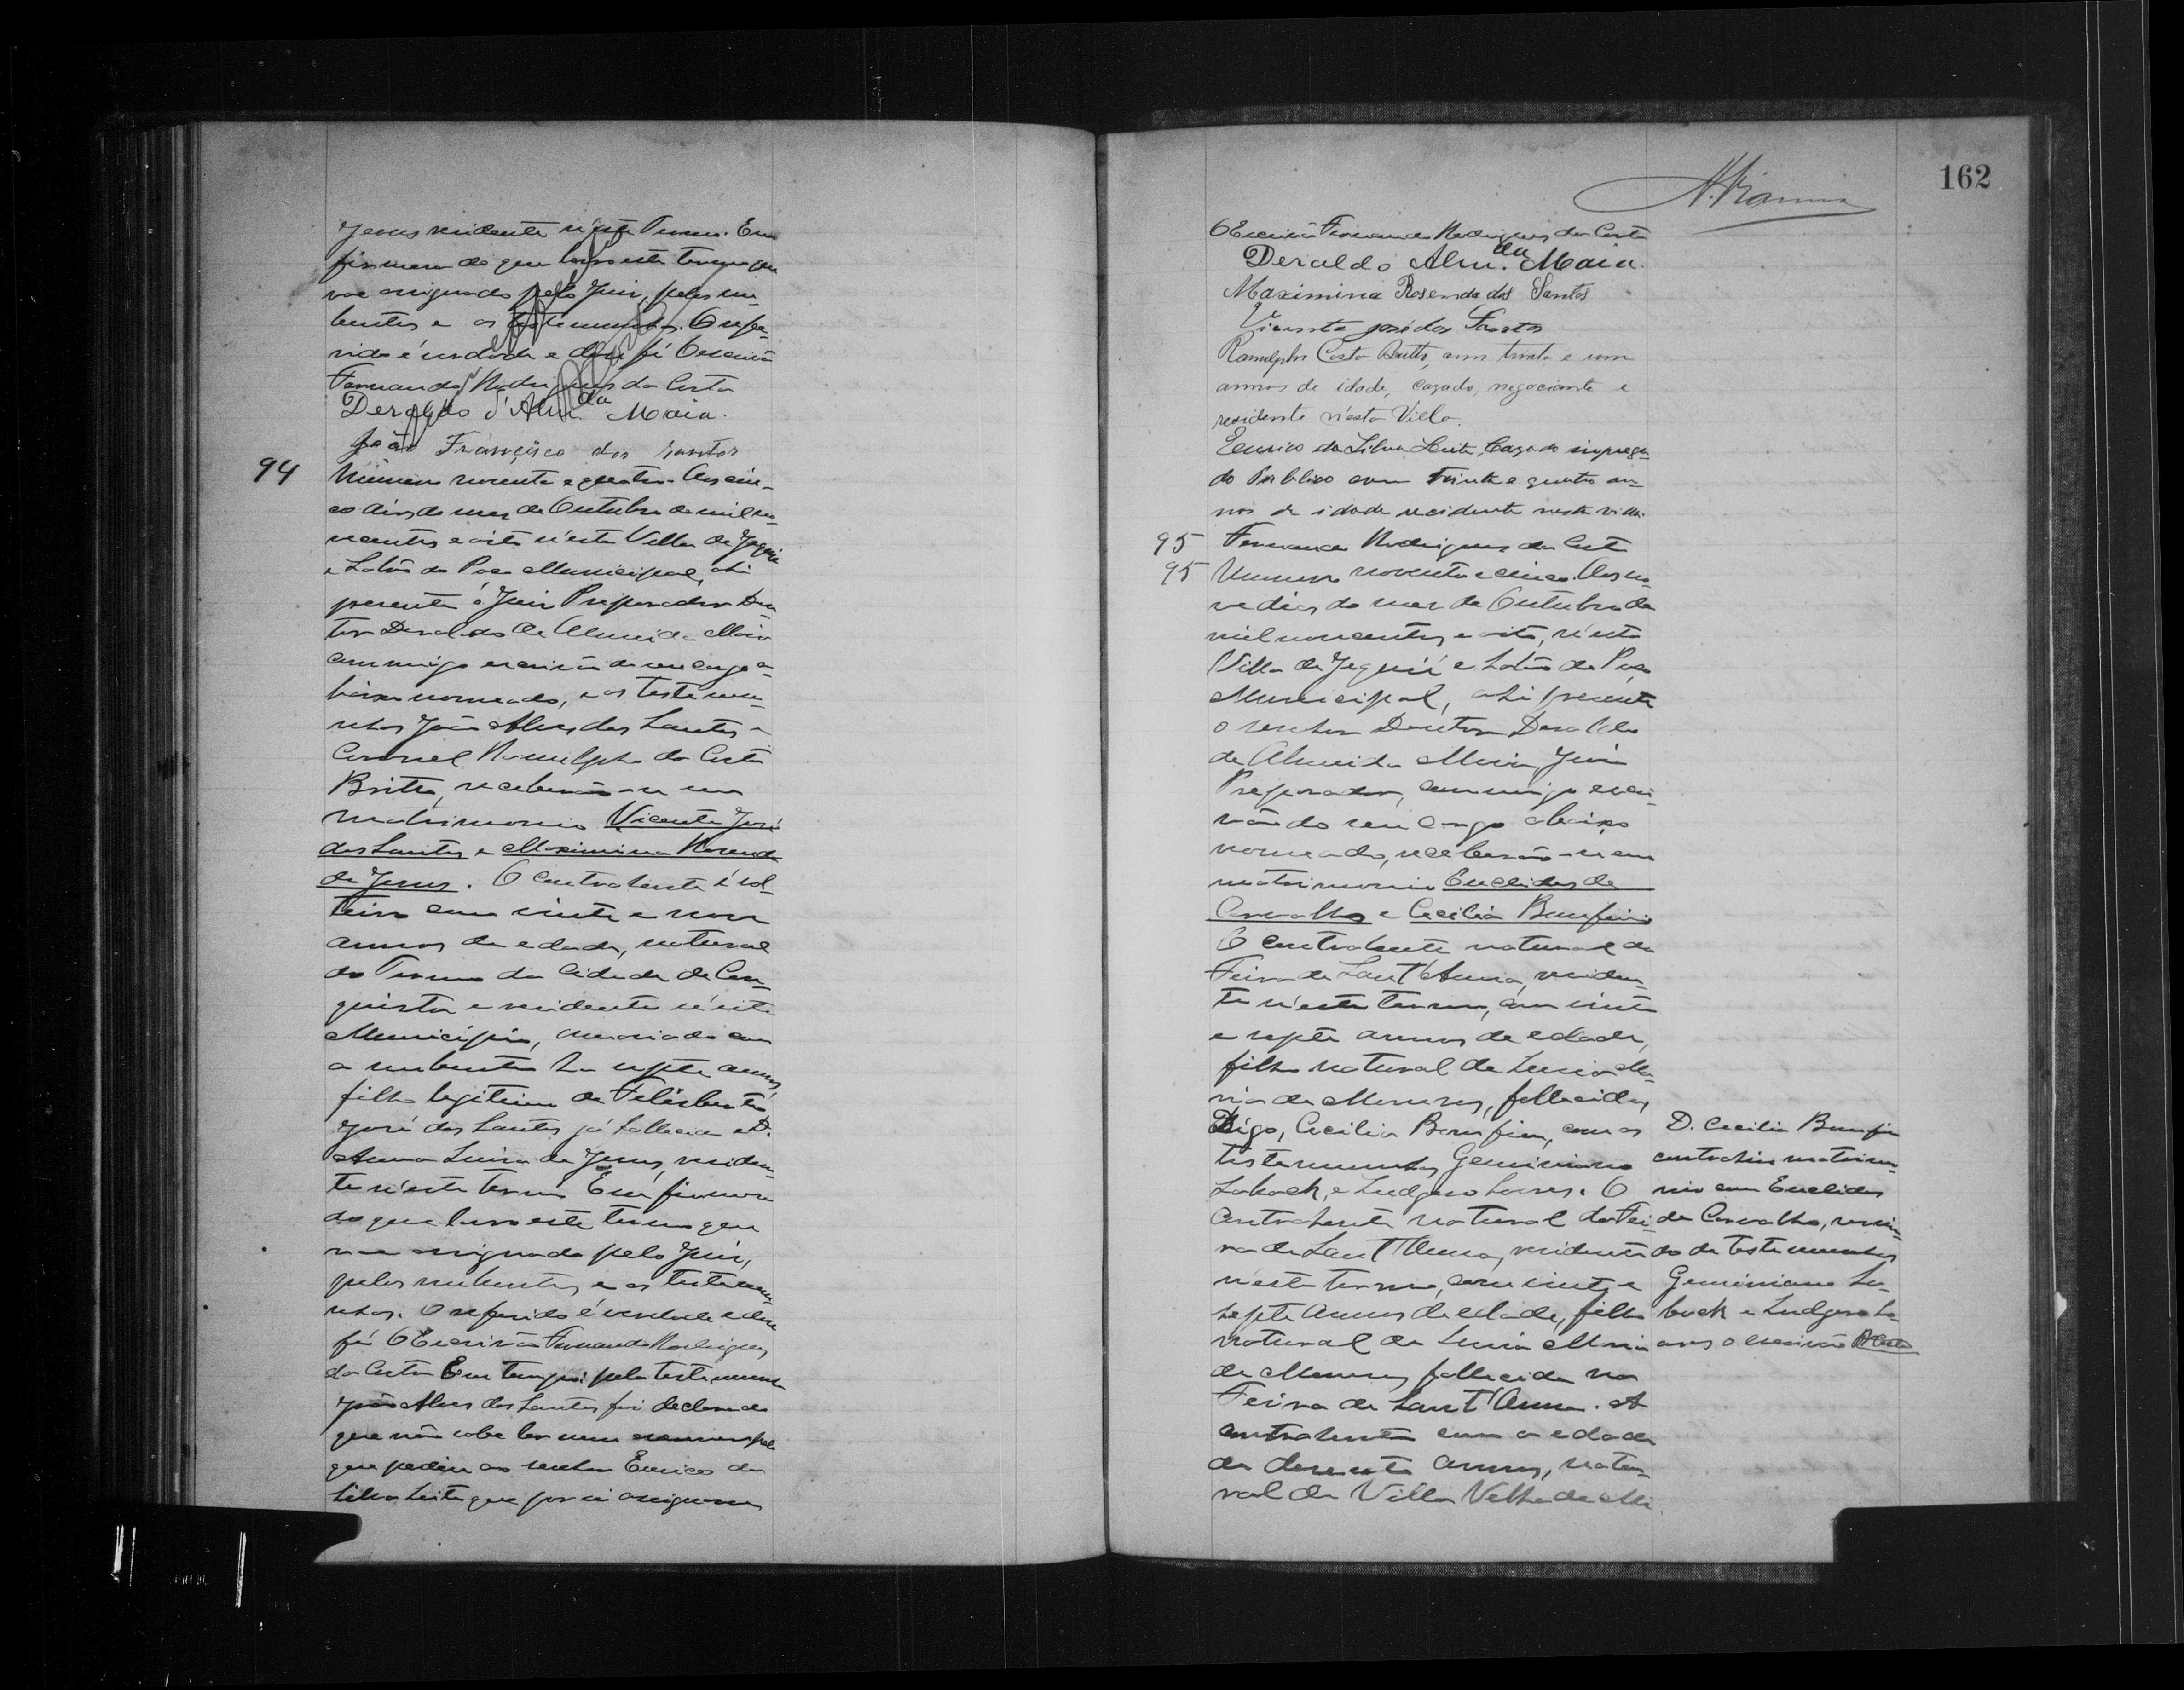 Jesus residente n'este Termo. Em
firmesa do que lavro este termo que
vae assignado pelo Juiz, pelos nu-
bentes e as testemunhas. O refe-
rido é verdade e dou fé O escrivão
Fernando Rodrigues da Costa
Deraldo d'Alm.da Maia.
João Francisco dos Santos
94
Numero noventa e quatro. Aos cin-
co dias do mez de Outubro de mil no-
vecentos e oito n'esta Villa de Jequié
e Salão do Paço Municipal, ahi
presente o Juiz Preparador Dou
tor Deraldo de Almeida Maia
commigo escrivão de seu cargo a-
baixo nomeado, e as testemu-
nhas João Alves dos Santos e
Coronel Ramulpho da Costa
Britto, receberão-se em
matrimonio Vicente José
dos Santos e Maximina Rosenda
de Jesus. O contrahente é sol-
teiro com vinte e nove
annos de edade, natural
do Termo da Cidade de Con-
quista e residente n'este
Municipio, amasiado com
a nubente ha septe annos,
filho legitimo de Felisberto
José dos Santos, já fallecido e D.
Anna Luisa de Jesus, residen-
te n'este termo. Em firmesa
do que lavro este termo que
vae assignado pelo Juiz,
pelos nubentes, e as testemu-
nhas. O referido é verdade e dou
fé O Escrivão Fernando Rodrigues
da Costa Em tempo: pela testemunha
João Alves dos Santos foi declarado
que não sabe ler nem escrever pelo
que pediu ao senhor Eurico da
Silva Leite que por si assignasse
162
O Escrivão Fernando Rodrigues da Costa
Deraldo Alm.da Maia.
Maximina Rosenda dos Santos
Vicente José dos Santos
Ramulpho Costa Britto, com trinta e um
annos de idade, cazado, negociante e
residente n'esta Villa.
Eurico da Silva Leite, Cazado imprega-
do Publico com trinta e quatro an-
nos de idade recidente nesta villa.
95 Fernando Rodrigues da Costa
95 Numero noventa e cinco. Aos no-
ve dias do mez de Outubro de
mil novecentos e oito, n'esta
Villa de Jequié e Salão do Paço
Municipal, ahi presente
o senhor Doutor Deraldo
de Almeida Maia, Juiz
Preparador, commigo escri-
vão do seu cargo abaixo
nomeado, receberão-se em
matrimonio Euclides de
Carvalho e Cecilia Bomfim
O contrahente natural da
Feira de Sant'Anna, residen-
te n'este termo, com vinte
e septe annos de edade,
filho natural de Lucia Ma-
ria de Menezes, fallecida,
Digo, Cecilia Bomfim, com as
testemunhas Geminiano
Loback, e Ludgero Soares. O
contrahente natural da Fei-
ra de Sant'Anna, residente
n'este termo, com vinte e
septe annos de edade, filho
natural de Lucia Maria
de Menezes fallecida na
Feira de Sant'Anna. A
contrahente com a edade
de desesete annos, natu-
ral da Villa Velha de Mi
D. Cecilia Bomfim
contrahiu matrimo-
nio com Euclides
de Carvalho, servin-
do de testemunhas
Geminiano Lo-
back e Ludgero So-
ares o escrivão RCosta